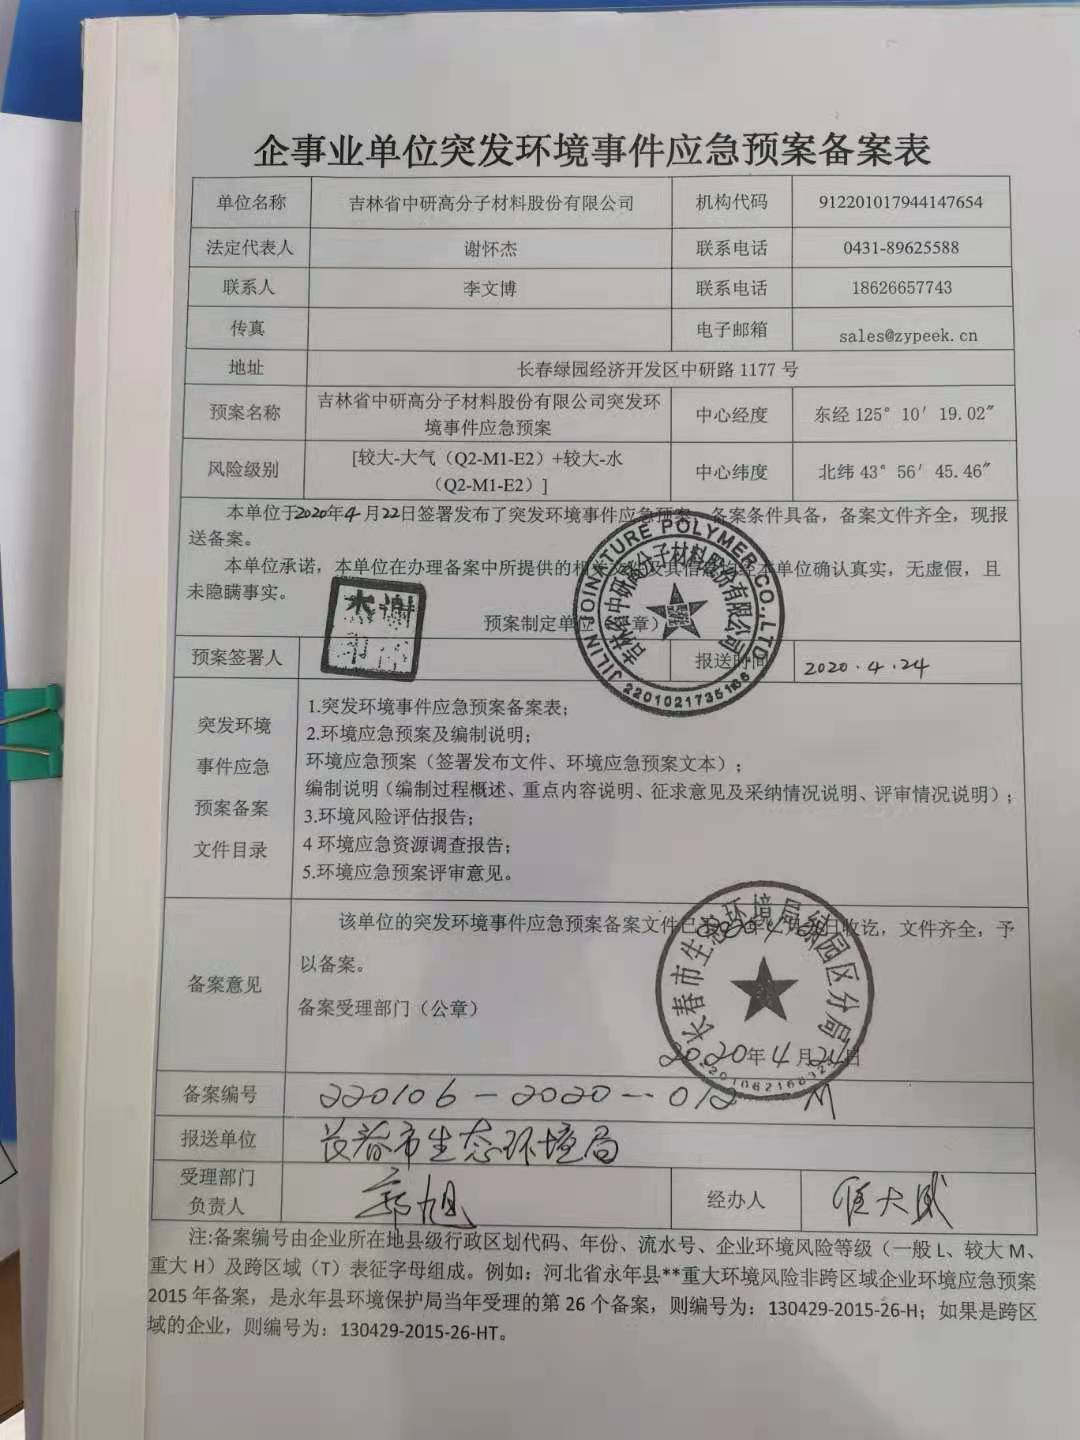 企事业单位突发环境事件应急预案备案表
单位名称 吉林省中研高分子材料股份有限公司 机构代码 912201017944147654
法定代表人 谢怀杰 联系电话 0431-89625588
联系人 李文博 联系电话 18626657743
传真 电子邮箱 sales@zypeek.cn
地址 长春绿园经济开发区中研路1177号
预案名称 吉林省中研高分子材料股份有限公司突发环
境事件应急预案 中心经度 东经125°10′19.02″
风险级别 [较大-大气（Q2-M1-E2）+较大-水
（Q2-M1-E2）] 中心纬度 北纬43°56′45.46″
本单位于2020年4月22日签署发布了突发环境事件应急预案，备案条件具备，备案文件齐全，现报
送备案。
本单位承诺，本单位在办理备案中所提供的相关文件及其信息均经本单位确认真实，无虚假，且
未隐瞒事实。
预案制定单位（公章）
JILIN JOINATURE POLYMER CO.,LTD.
吉林省中研高分子材料股份有限公司
2201021735166
预案签署人 报送时间 2020.4.24
突发环境
事件应急
预案备案
文件目录
1.突发环境事件应急预案备案表；
2.环境应急预案及编制说明；
环境应急预案（签署发布文件、环境应急预案文本）；
编制说明（编制过程概述、重点内容说明、征求意见及采纳情况说明、评审情况说明）；
3.环境风险评估报告；
4 环境应急资源调查报告；
5.环境应急预案评审意见。
备案意见
该单位的突发环境事件应急预案备案文件已于2020年4月 日收讫，文件齐全，予
以备案。
备案受理部门（公章）
长春市生态环境局绿园区分局
2020年4月24日
备案编号 220106-2020-012 M
报送单位 长春市生态环境局
受理部门
负责人 经办人
注:备案编号由企业所在地县级行政区划代码、年份、流水号、企业环境风险等级（一般L、较大M、
重大H）及跨区域（T）表征字母组成。例如：河北省永年县**重大环境风险非跨区域企业环境应急预案
2015年备案，是永年县环境保护局当年受理的第26个备案，则编号为：130429-2015-26-H；如果是跨区
域的企业，则编号为：130429-2015-26-HT。